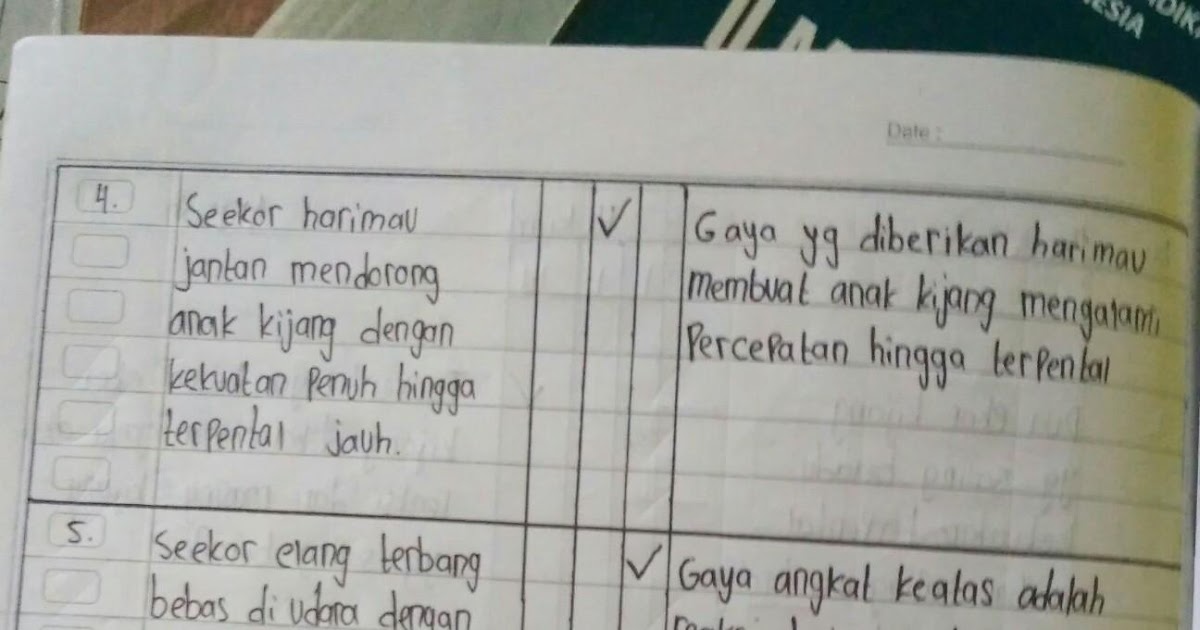 ESIA
Date :
4.
Seekor harimau
jantan mendorong
anak kijang dengan
kekuatan penuh hingga
terpental jauh.
✓
Gaya yg diberikan harimau
membuat anak kijang mengalami
Percepatan hingga terpental
5.
Seekor elang terbang
bebas di udara dengan
✓
Gaya angkat keatas adalah